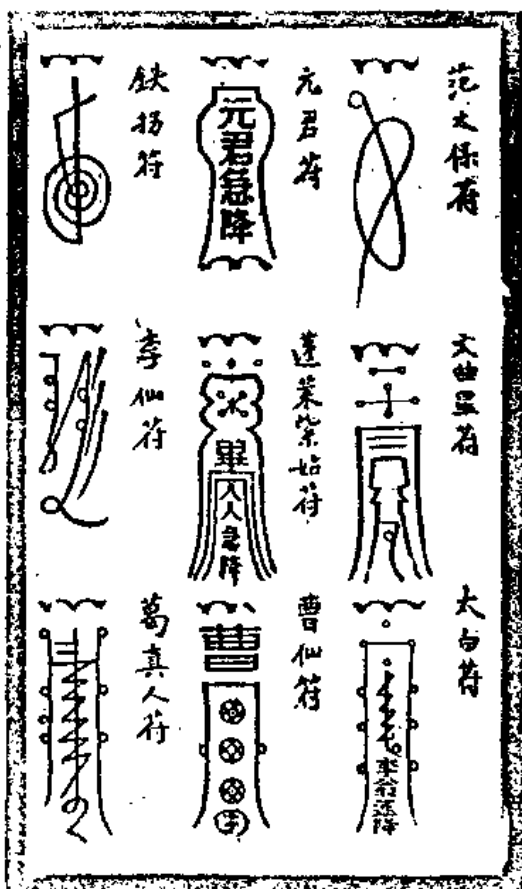 范太保符
文曲星符
太白符
李翁速降
元君符
元君急降
蓬萊紫姑符
急降
曹仙符
曹
鉄拐符
李仙符
葛真人符